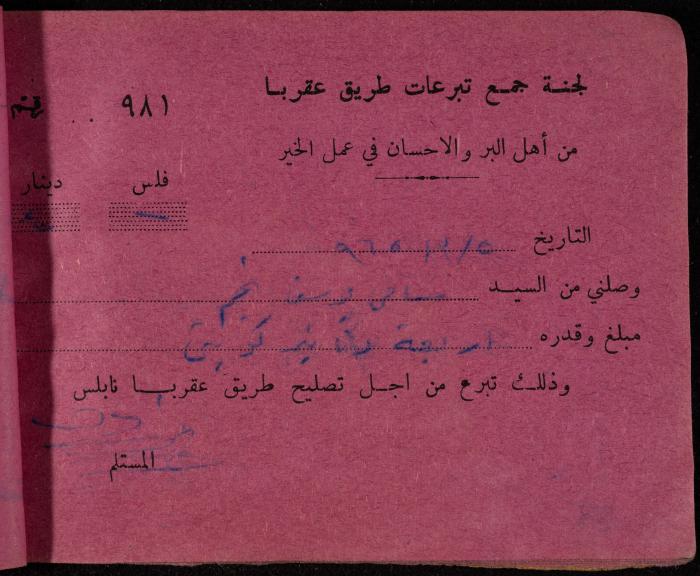 لجنة جمع تبرعات طريق عقربا
رقم .. ٩٨١
من أهل البر والاحسان في عمل الخير
فلس دينار
التاريخ ٥/١٢/٩٦٥
وصلني من السيد سامي يوسف نجم
مبلغ وقدره اربعة دنانير كويتي
وذلك تبرع من اجل تصليح طريق عقربا نابلس
المستلم